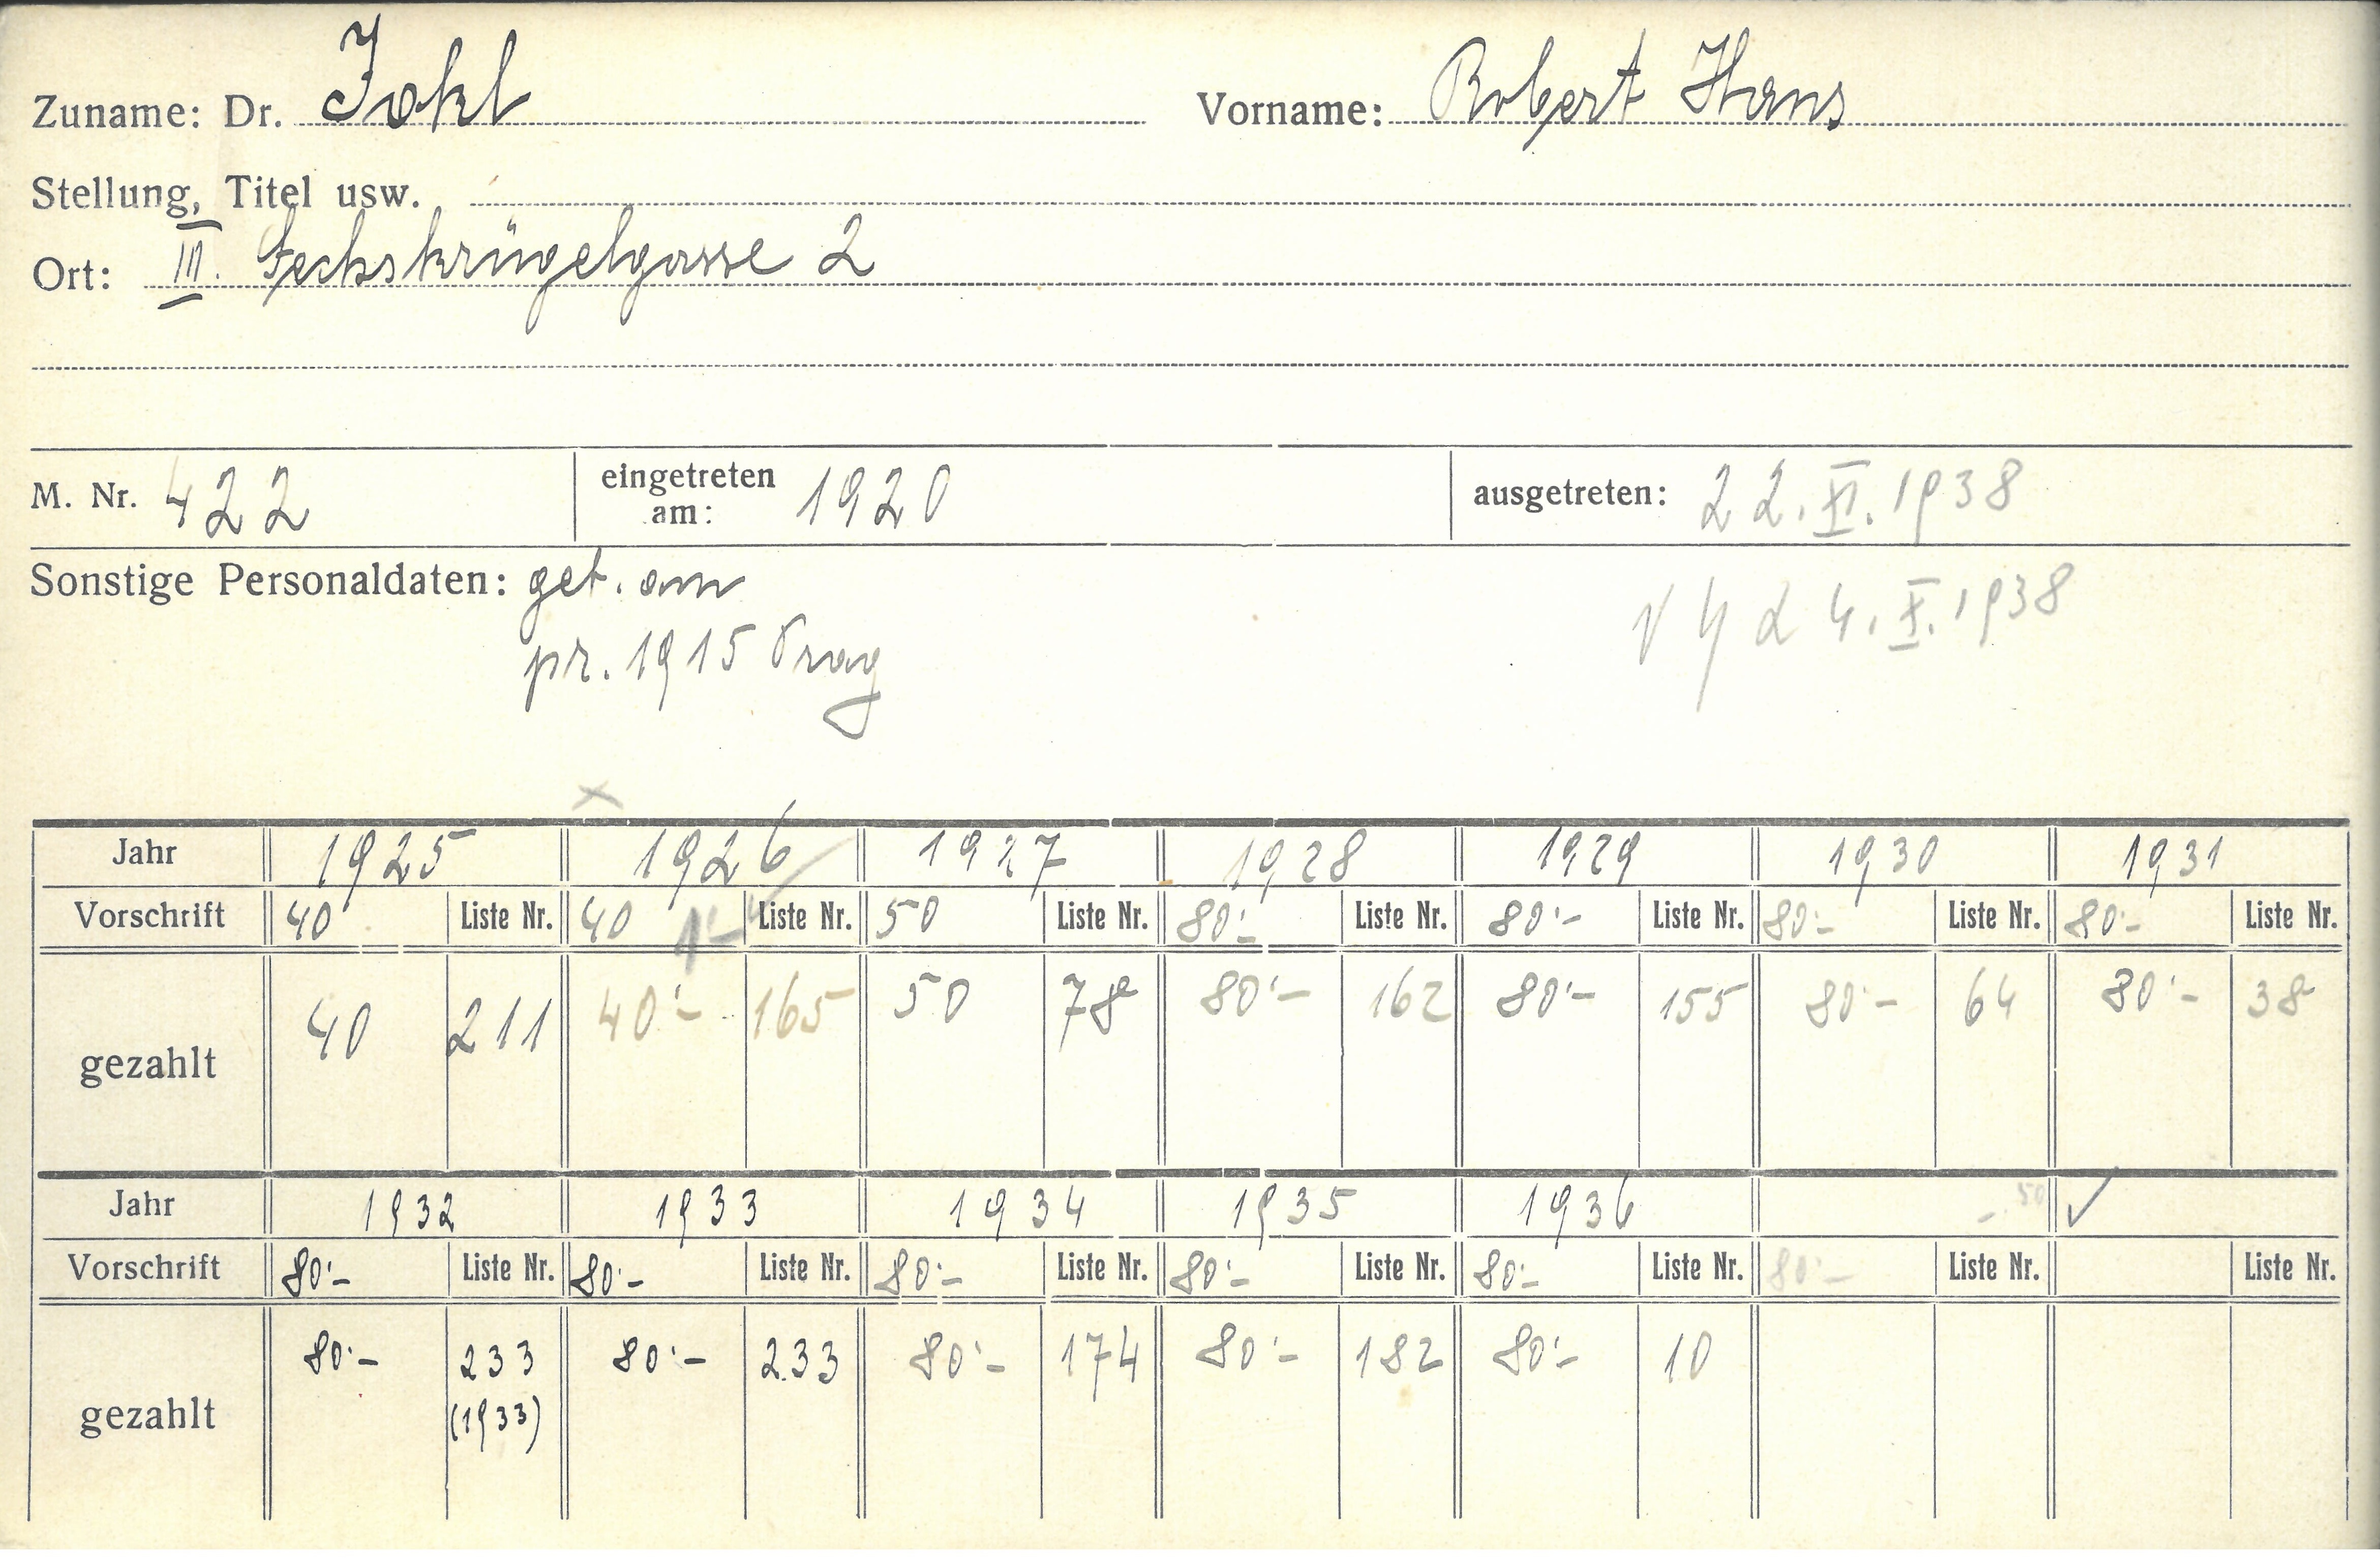 Zuname: Dr. Jokl Vorname: Robert Hans
Stellung, Titel usw.
Ort: III. Sechskrügelgasse 2
M. Nr. 422 eingetreten am: 1920 ausgetreten: 22. XI. 1938
Sonstige Personaldaten: geb. am
4. X. 1938
pr. 1915 Prag
Jahr 1925 1926 1927 1928 1929 1930 1931
Vorschrift 40 Liste Nr. 40 Liste Nr. 50 Liste Nr. 80'- Liste Nr. 80'- Liste Nr. 80'- Liste Nr. 80'- Liste Nr.
gezahlt 40 211 40'- 165 50 78 80'- 162 80'- 155 80'- 64 80'- 38
Jahr 1932 1933 1934 1935 1936
Vorschrift 80'- Liste Nr. 80'- Liste Nr. 80'- Liste Nr. 80'- Liste Nr. 80'- Liste Nr. 80'- Liste Nr. Liste Nr.
gezahlt 80'- 233 80'- 233 80'- 174 80'- 182 80'- 10
(1933)